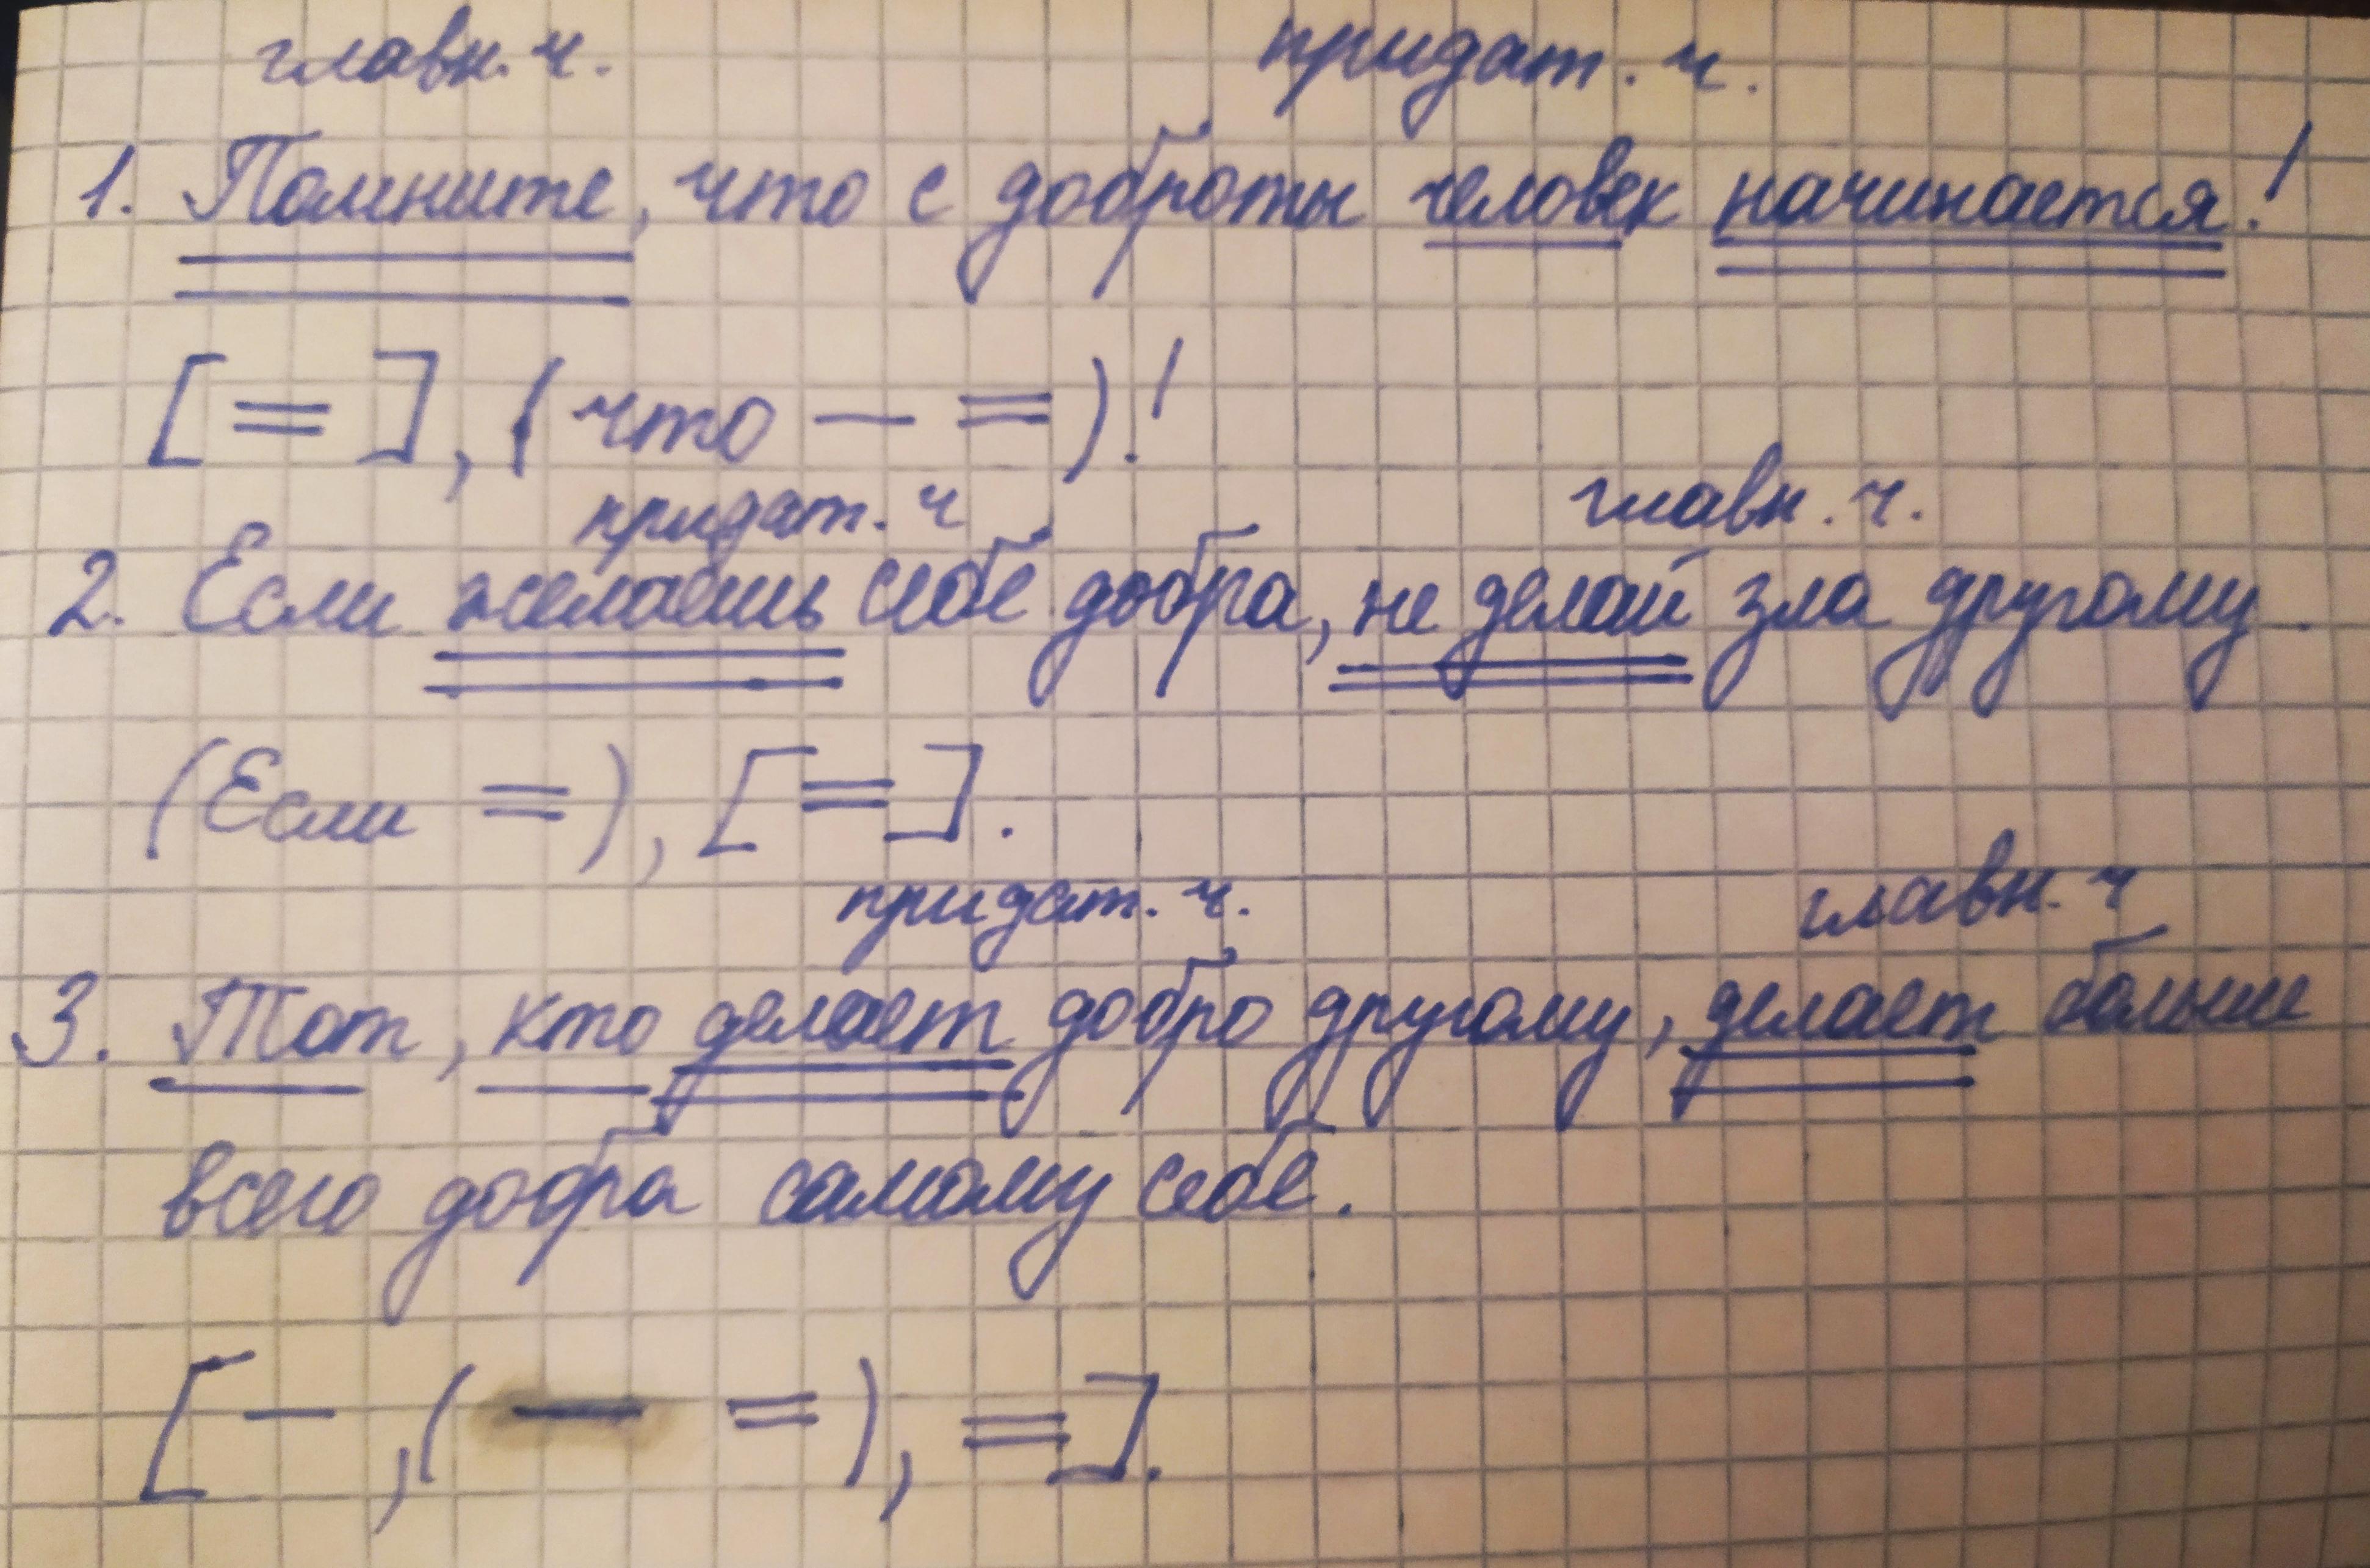 главн. ч. придат. ч.
1. Помните, что с доброты человек начинается!
[ = ], ( что — = )!
придат. ч главн. ч.
2. Если желаешь себе добра, не делай зла другому.
(Если = ), [ = ].
придат. ч. главн. ч
3. Тот, кто делает добро другому, делает больше
всего добра самому себе.
[ — , ( — = ), = ].